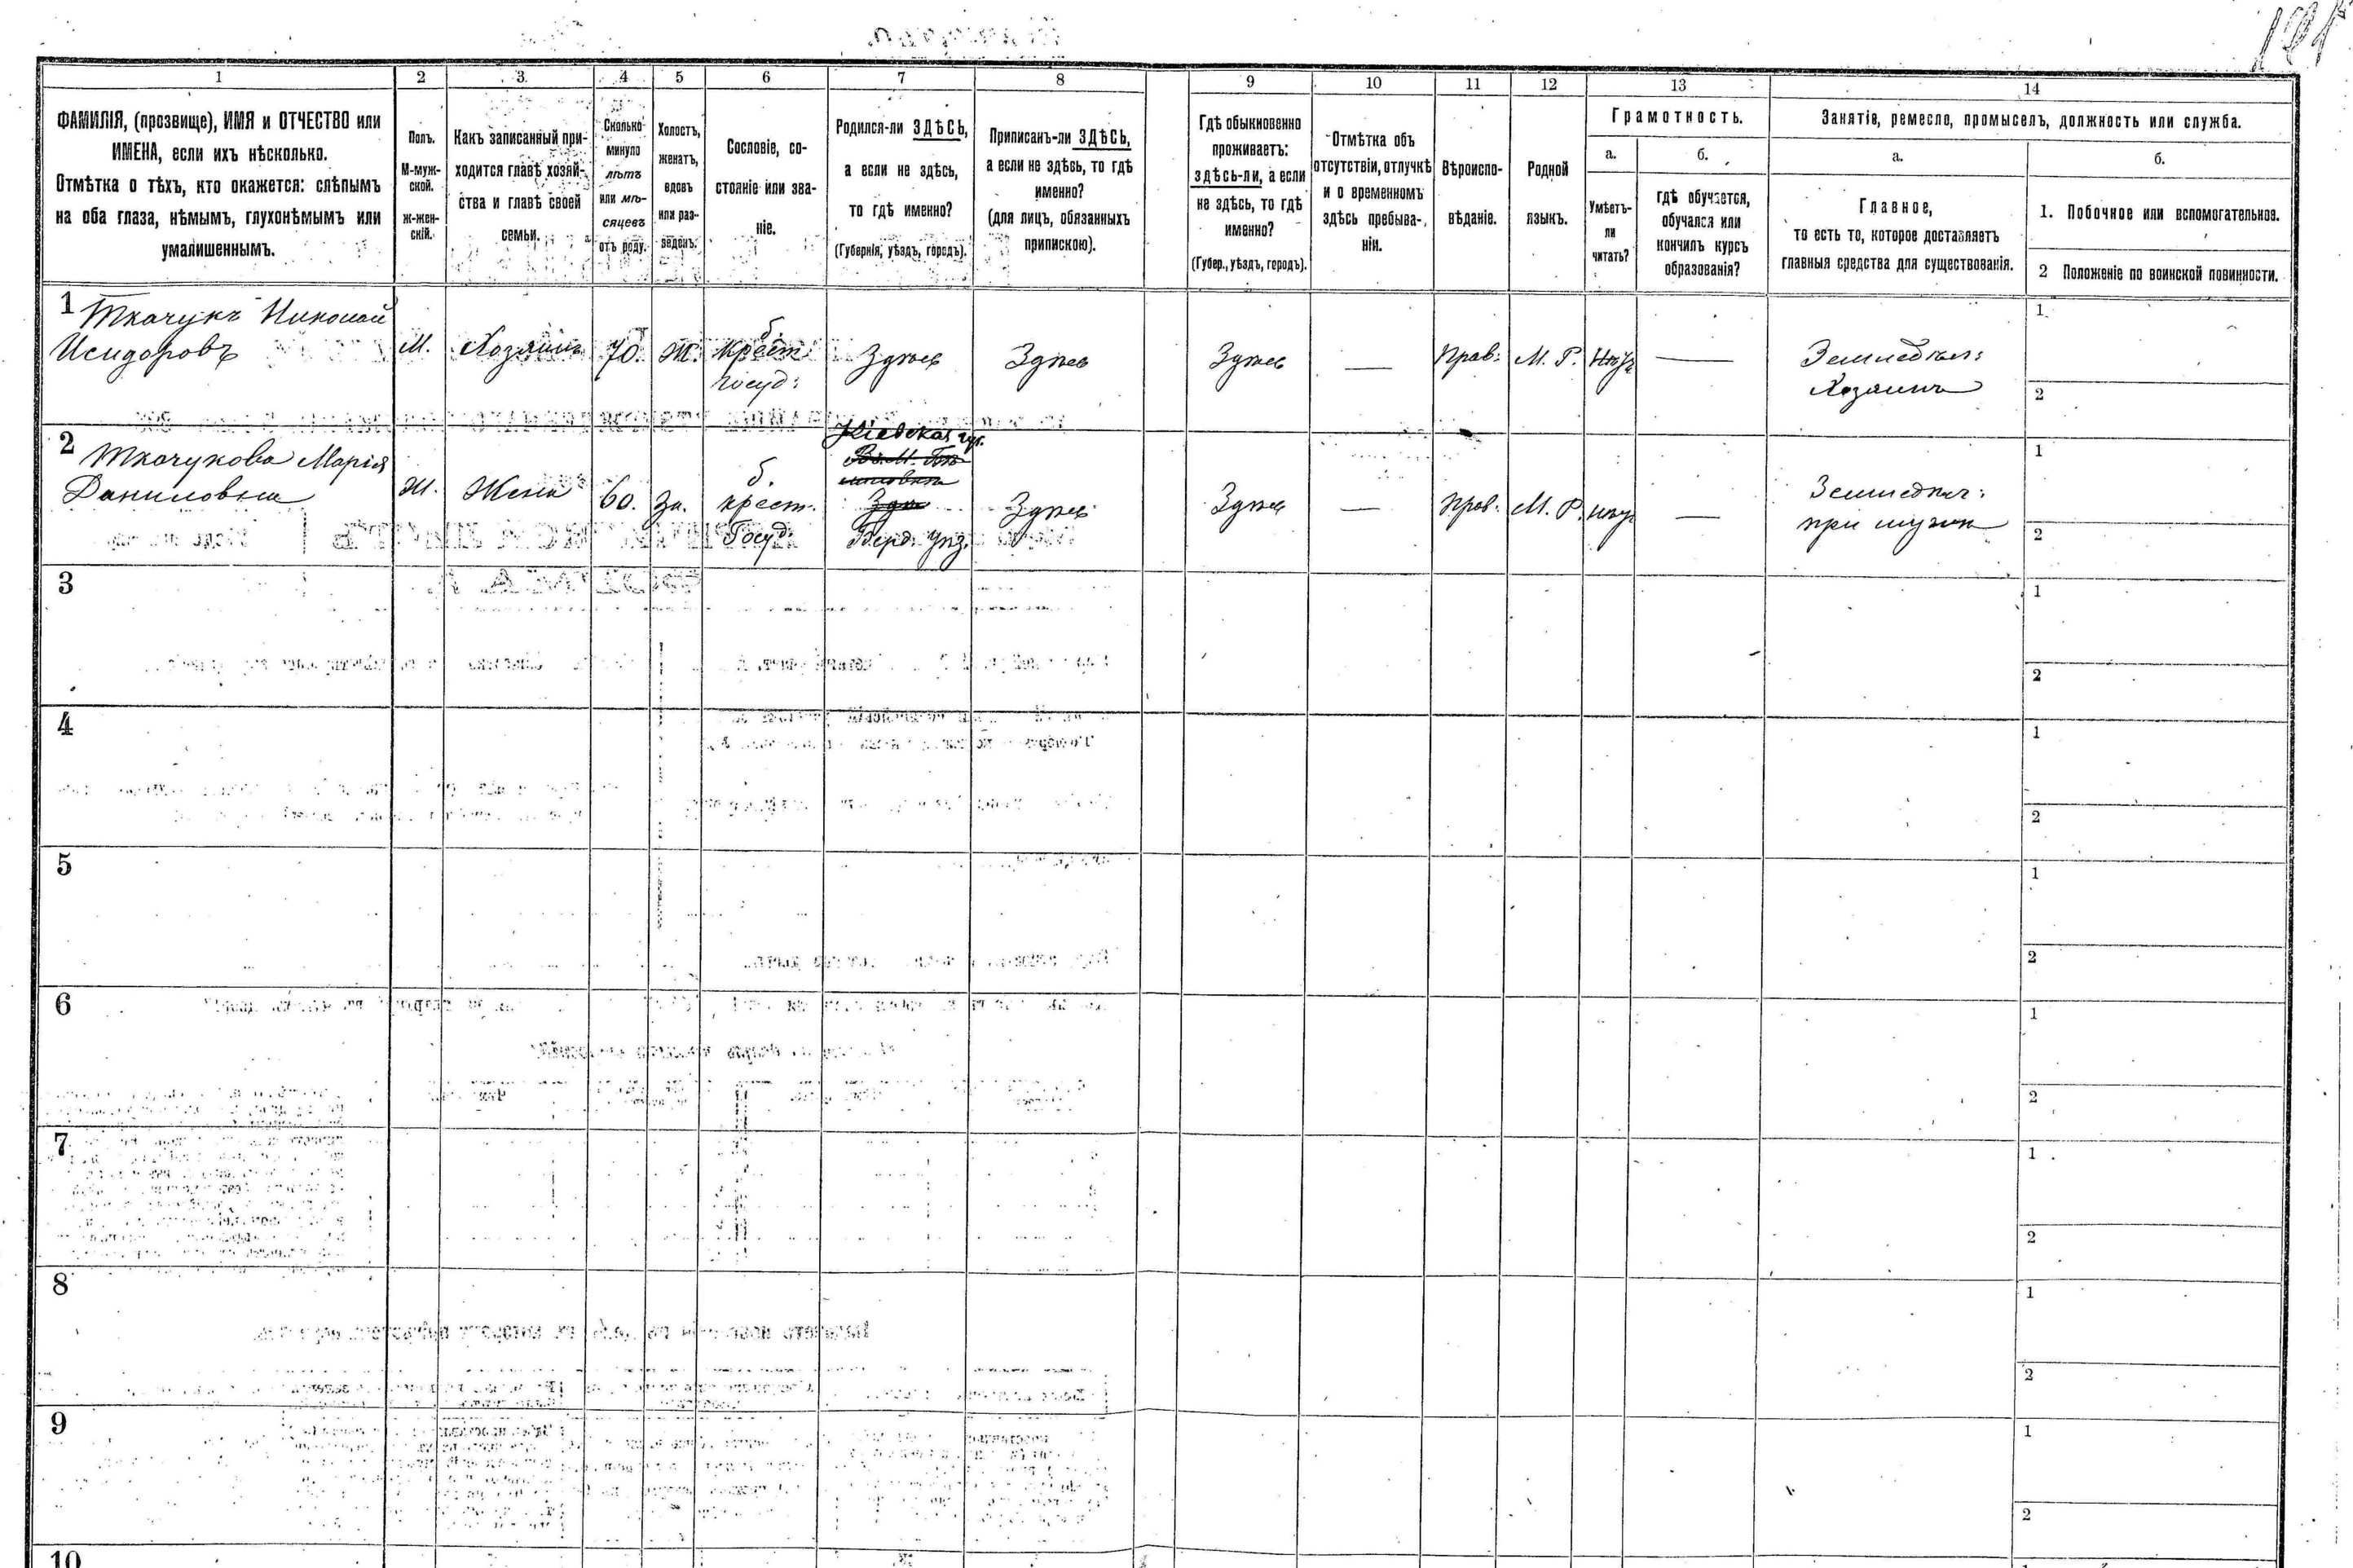 1 2 3 4 5 6 7 8 9 10 11 12 13 14
ФАМИЛІЯ, (прозвище), ИМЯ и ОТЧЕСТВО или
ИМЕНА, если ихъ нѣсколько.
Отмѣтка о тѣхъ, кто окажется: слѣпымъ
на оба глаза, нѣмымъ, глухонѣмымъ или
умалишеннымъ.
Полъ.
М-муж-
ской.
ж-жен-
скій.
Какъ записанный при-
ходится главѣ хозяй-
ства и главѣ своей
семьи.
Сколько
минуло
лѣтъ
или мѣ-
сяцевъ
отъ роду.
Холостъ,
женатъ,
вдовъ
или раз-
веденъ.
Сословіе, со-
стояніе или зва-
ніе.
Родился-ли ЗДѢСЬ,
а если не здѣсь,
то гдѣ именно?
(Губернія, уѣздъ, городъ).
Приписанъ-ли ЗДѢСЬ,
а если не здѣсь, то гдѣ
именно?
(для лицъ, обязанныхъ
припискою).
Гдѣ обыкновенно
проживаетъ:
здѣсь-ли, а если
не здѣсь, то гдѣ
именно?
(Губер., уѣздъ, городъ).
Отмѣтка объ
отсутствіи, отлучкѣ
и о временномъ
здѣсь пребыва-
ніи.
Вѣроиспо-
вѣданіе.
Родной
языкъ.
Грамотность.
а.
Умѣетъ-
ли
читать?
б.
гдѣ обучается,
обучался или
кончилъ курсъ
образованія?
Занятіе, ремесло, промыселъ, должность или служба.
а.
Главное,
то есть то, которое доставляетъ
главныя средства для существованія.
б.
1. Побочное или вспомогательное.
2 Положеніе по воинской повинности.
1 Ткачукъ Николай
Исидоровъ
М.
Хозяинъ
70.
Ж.
б.
крест.
госуд:
Здѣсь
Здѣсь
Здѣсь
—
Прав:
М. Р.
Нѣтъ
—
Земледѣл:
Хозяинъ
1
2
2 Ткачукова Марія
Даниловна
Ж.
Жена
60.
За.
б.
крест.
Госуд:
Кіевская губ.
Берд. уѣз.
Здѣсь
Здѣсь
—
Прав.
М. Р.
нѣтъ
—
Земледѣл:
при мужѣ
1
2
3
1
2
4
1
2
5
1
2
6
1
2
7
1
2
8
1
2
9
1
2
10